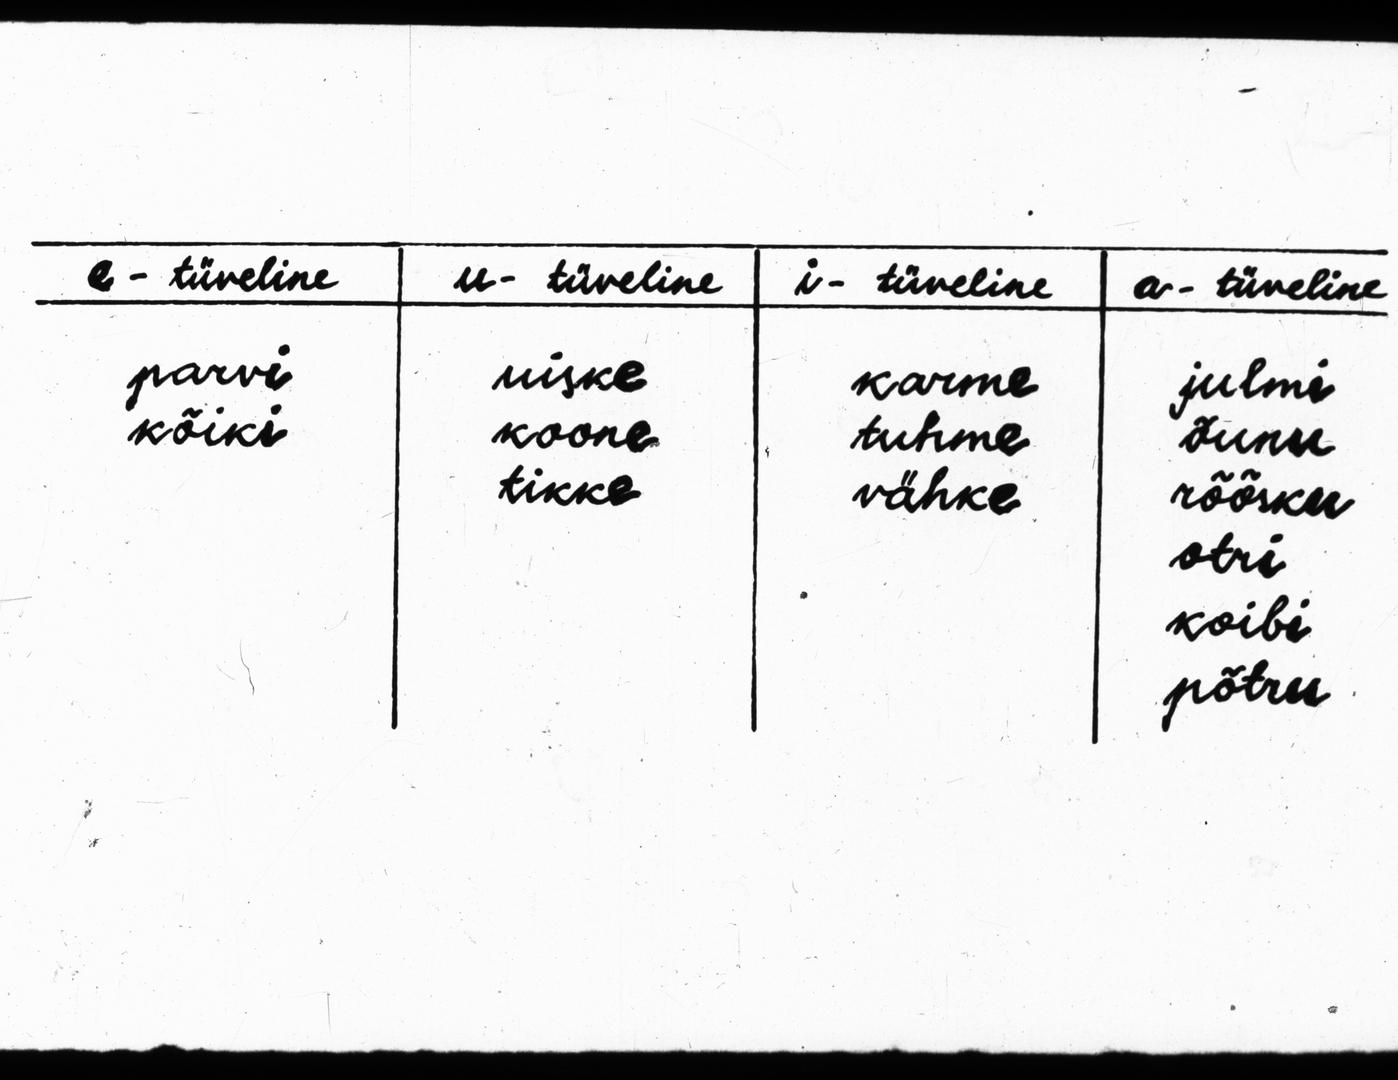 e - tüveline u- tüveline i- tüveline a- tüveline
parvi uiske karme julmi
kõiki koone tuhme õunu
tikke vähke rõõsku
otri
koibi
põtru